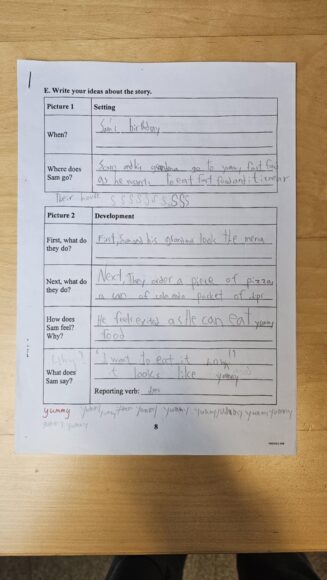 E. Write your ideas about the story.
Picture 1
Setting
When?
Sam's birthday
Where does
Sam go?
Sam and his grandma go to yummy fast food
as he wants to eat fast food and it is near
Their house SSSSSSSSSS
Picture 2
Development
First, what do
they do?
First, Sam and his grandma look the menu
Next, what do
they do?
Next, They order a piece of pizza,
a can of cola and a packet of
How does
Sam feel?
Why?
He feels excited as He can eat yummy
food
Why?
What does
Sam say?
"I want to eat it now"
it looks like yummy
Reporting verb:
yummy yummy yummy yummy yummy yummy yummy yummy
yummy yummy
8